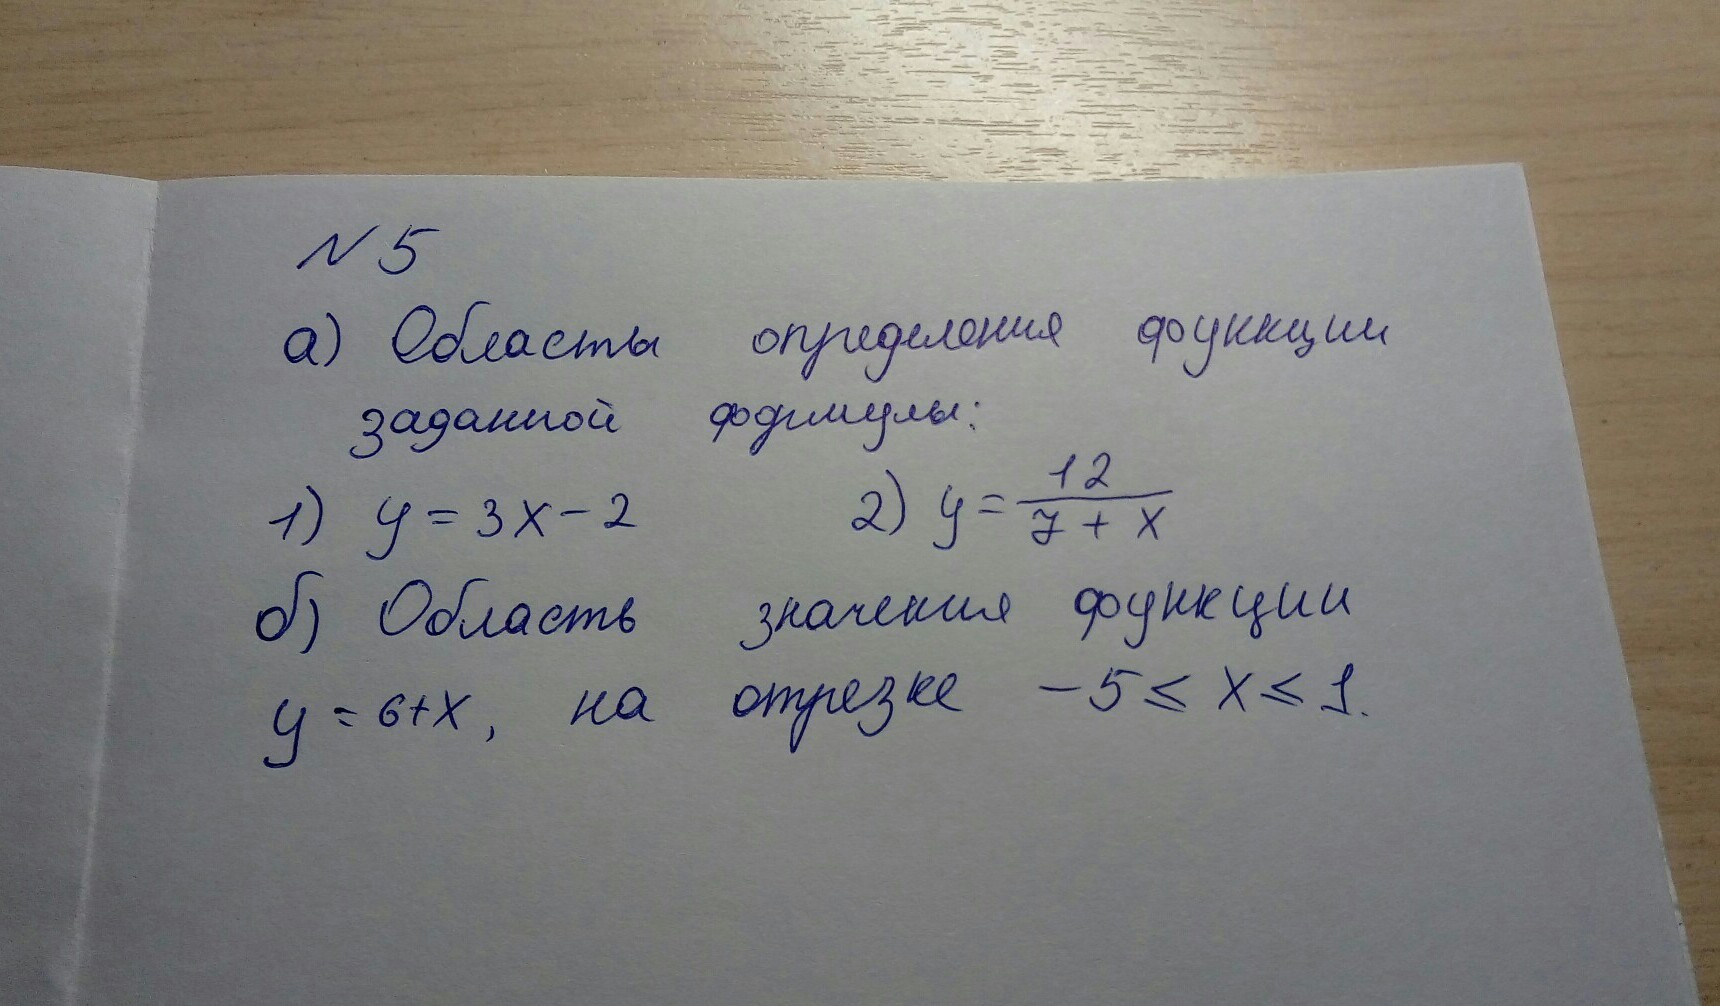 N 5
а) Области определения функции
заданной формулы:
1) y = 3x - 2 2) y = 12/(7 + x)
б) Область значения функции
y = 6+x, на отрезке -5 ≤ x ≤ 1.